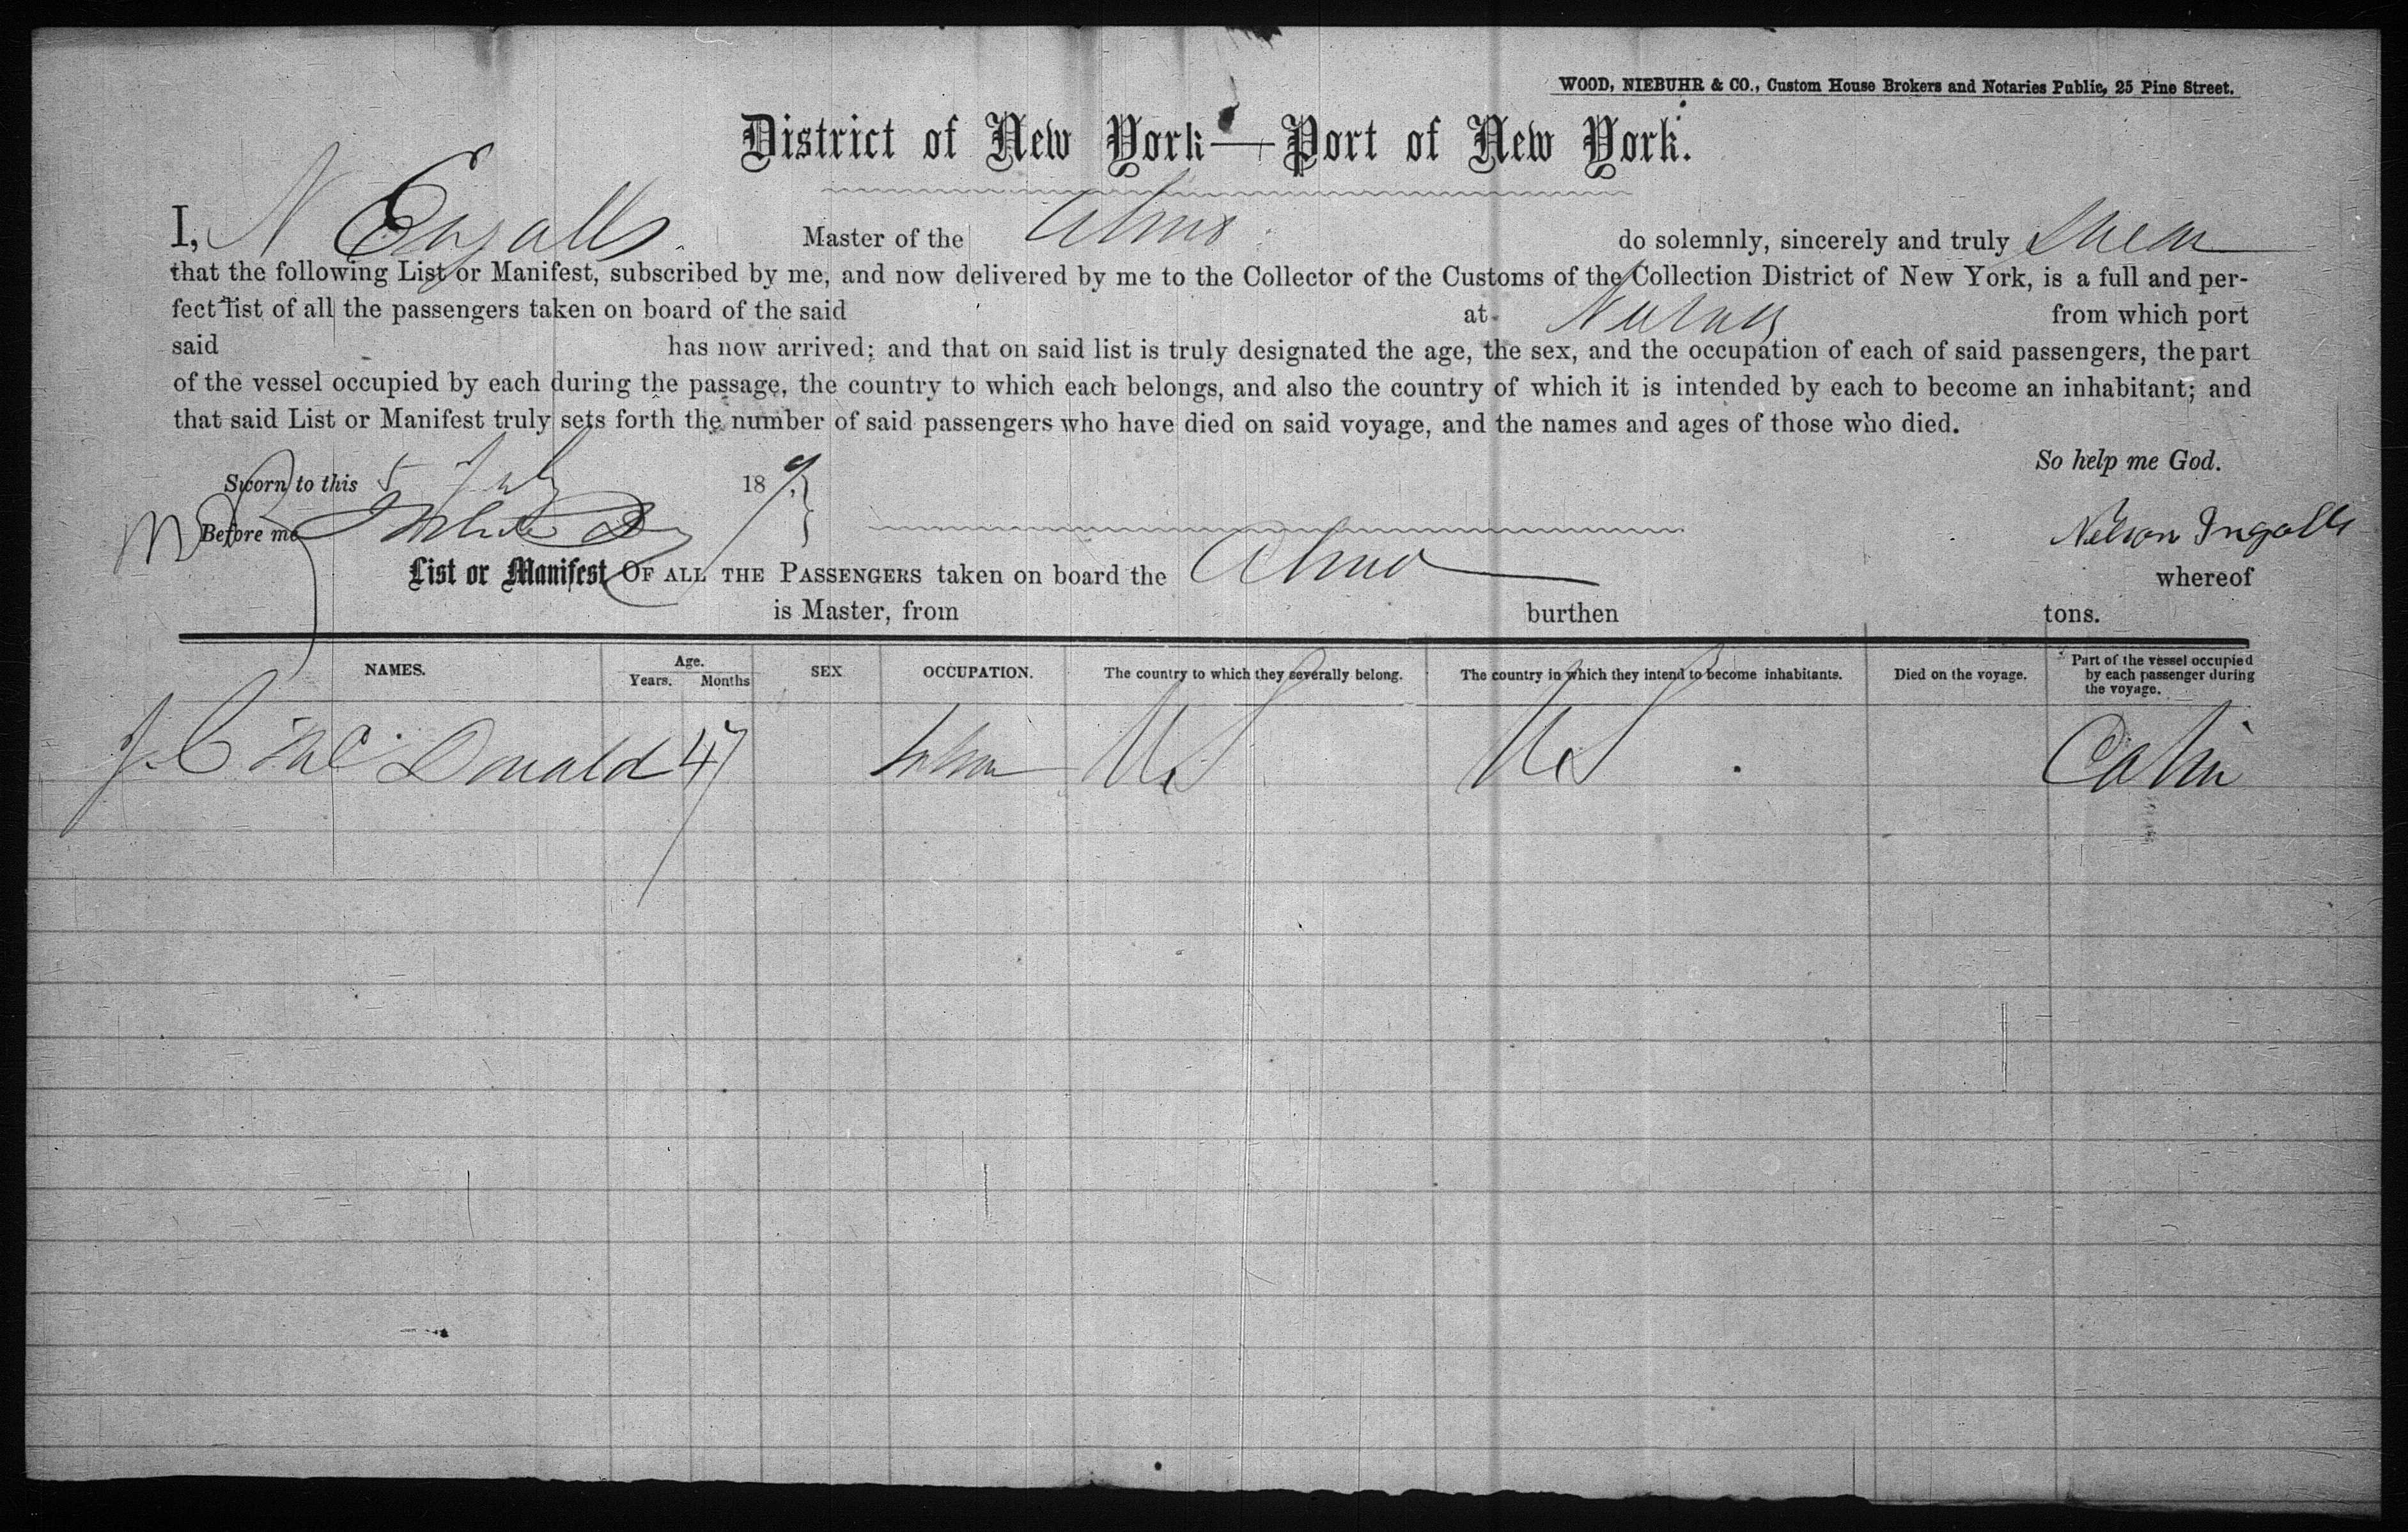 WOOD, NIEBUHR & CO., Custom House Brokers and Notaries Public, 25 Pine Street.
District of New York—Port of New York.
I, N Engalls Master of the do solemnly, sincerely and truly Swear
that the following List or Manifest, subscribed by me, and now delivered by me to the Collector of the Customs of the Collection District of New York, is a full and per-
fect list of all the passengers taken on board of the said at from which port
said has now arrived; and that on said list is truly designated the age, the sex, and the occupation of each of said passengers, the part
of the vessel occupied by each during the passage, the country to which each belongs, and also the country of which it is intended by each to become an inhabitant; and
that said List or Manifest truly sets forth the number of said passengers who have died on said voyage, and the names and ages of those who died.
So help me God.
Sworn to this 5 July 18
Before me
Nelson Ingalls
List or Manifest OF ALL THE PASSENGERS taken on board the whereof
is Master, from burthen tons.
NAMES. Age. Years. Months SEX OCCUPATION. The country to which they severally belong. The country in which they intend to become inhabitants. Died on the voyage. Part of the vessel occupied by each passenger during the voyage.
J. C McDonald 47 US US Cabin